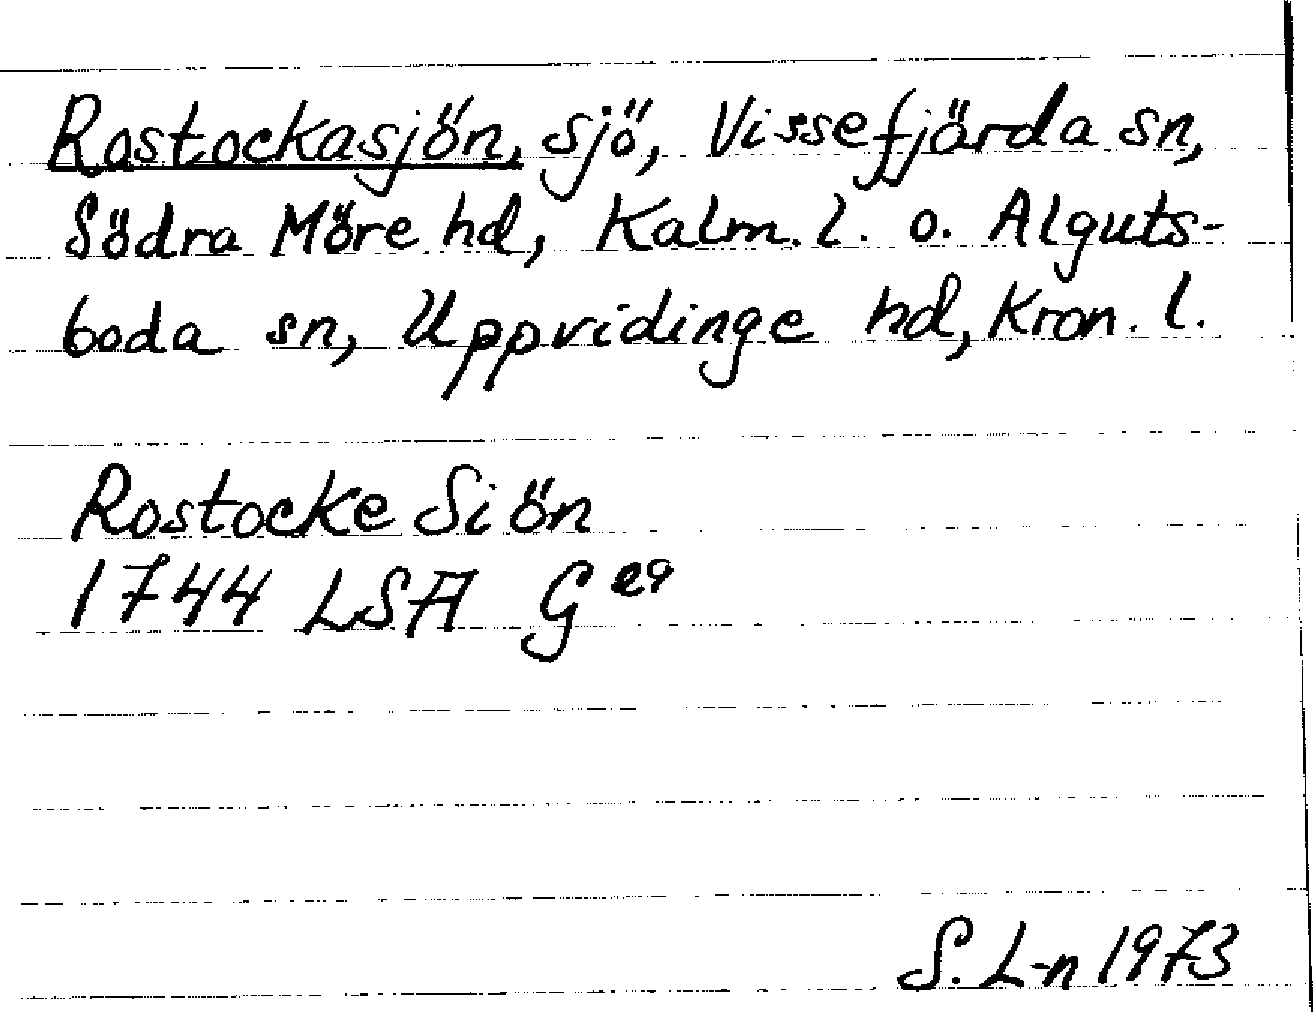 Rostockasjön, sjö, Vissefjärda sn,
Södra Möre hd, Kalm. l. o. Alguts-
boda sn, Uppvidinge hd, Kron. l.
Rostocke Siön
1744 LSA G e9
S. L-n 1973